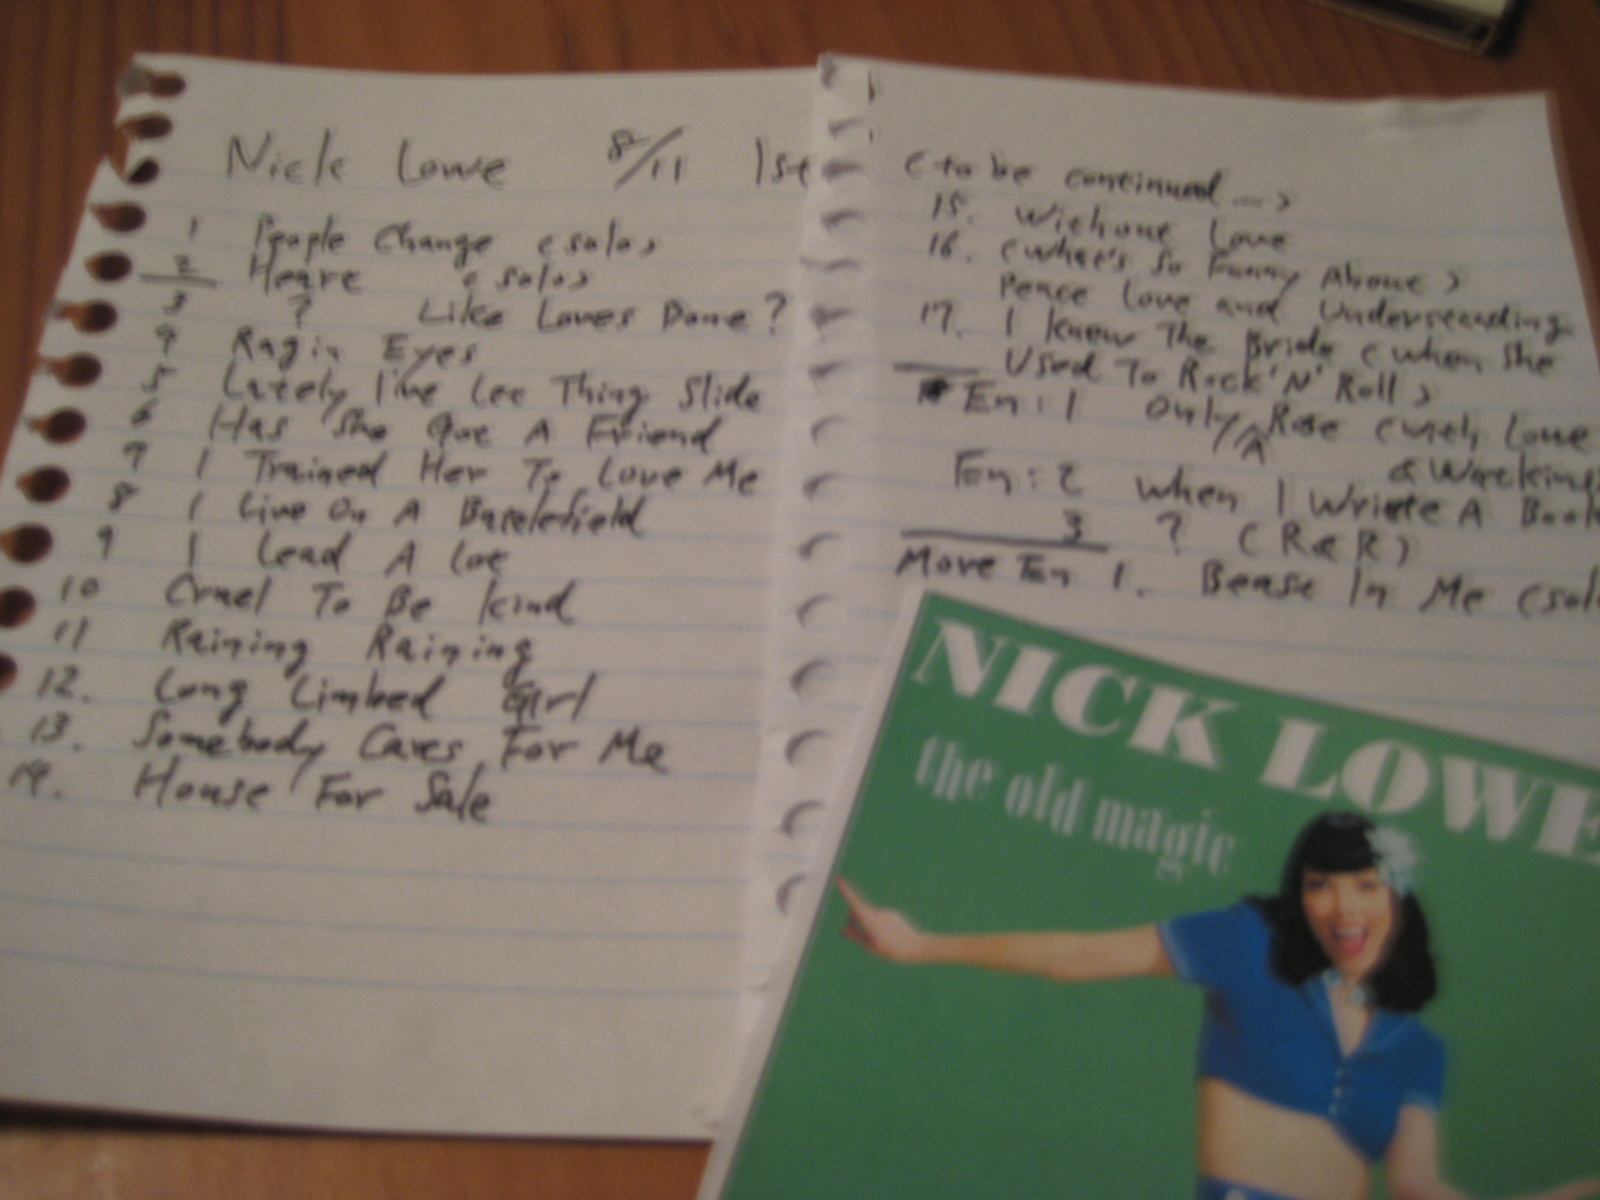 Nick Lowe 8/11 1st
1 People Change (solo)
2 Heart (solo)
3 ? Like Loves Done?
4 Ragin Eyes
5 Lately I've Let Thing Slide
6 Has She Got A Friend
7 I Trained Her To Love Me
8 I Live On A Battlefield
9 I Lead A Lot
10 Cruel To Be Kind
11 Raining Raining
12. Long Limbed Girl
13. Somebody Cares For Me
14. House For Sale
(to be continued →
15. Without Love
16. (What's So Funny About)
Peace Love and Understanding
17. I Knew The Bride (when she
Used To Rock 'N' Roll)
En: 1 Only A Rose (with Love
& Watkins
En: 2 When I Write A Book
3 ? (R&R)
More En 1. Beast In Me (solo
NICK LOWE
the old magic